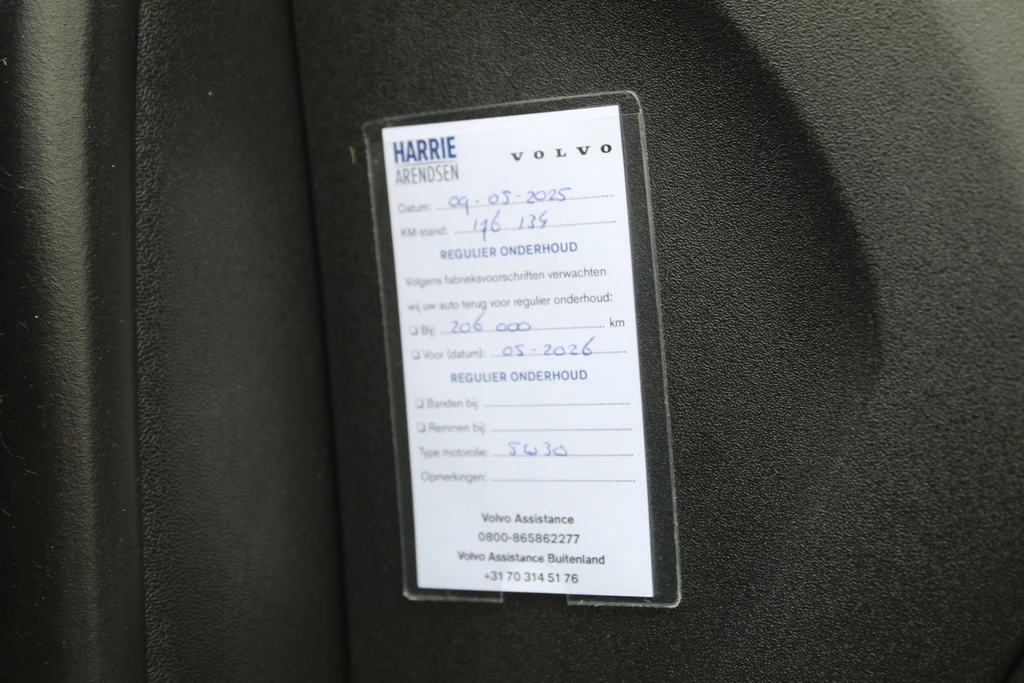 HARRIE
ARENDSEN
VOLVO
Datum: 09-05-2025
KM-stand: 176 134
REGULIER ONDERHOUD
Volgens fabrieksvoorschriften verwachten
wij uw auto terug voor regulier onderhoud:
❏ Bij: 206 000 km
❏ Voor (datum): 05-2026
REGULIER ONDERHOUD
❏ Banden bij:
❏ Remmen bij:
Type motorolie: 5W30
Opmerkingen:
Volvo Assistance
0800-865862277
Volvo Assistance Buitenland
+31 70 314 51 76